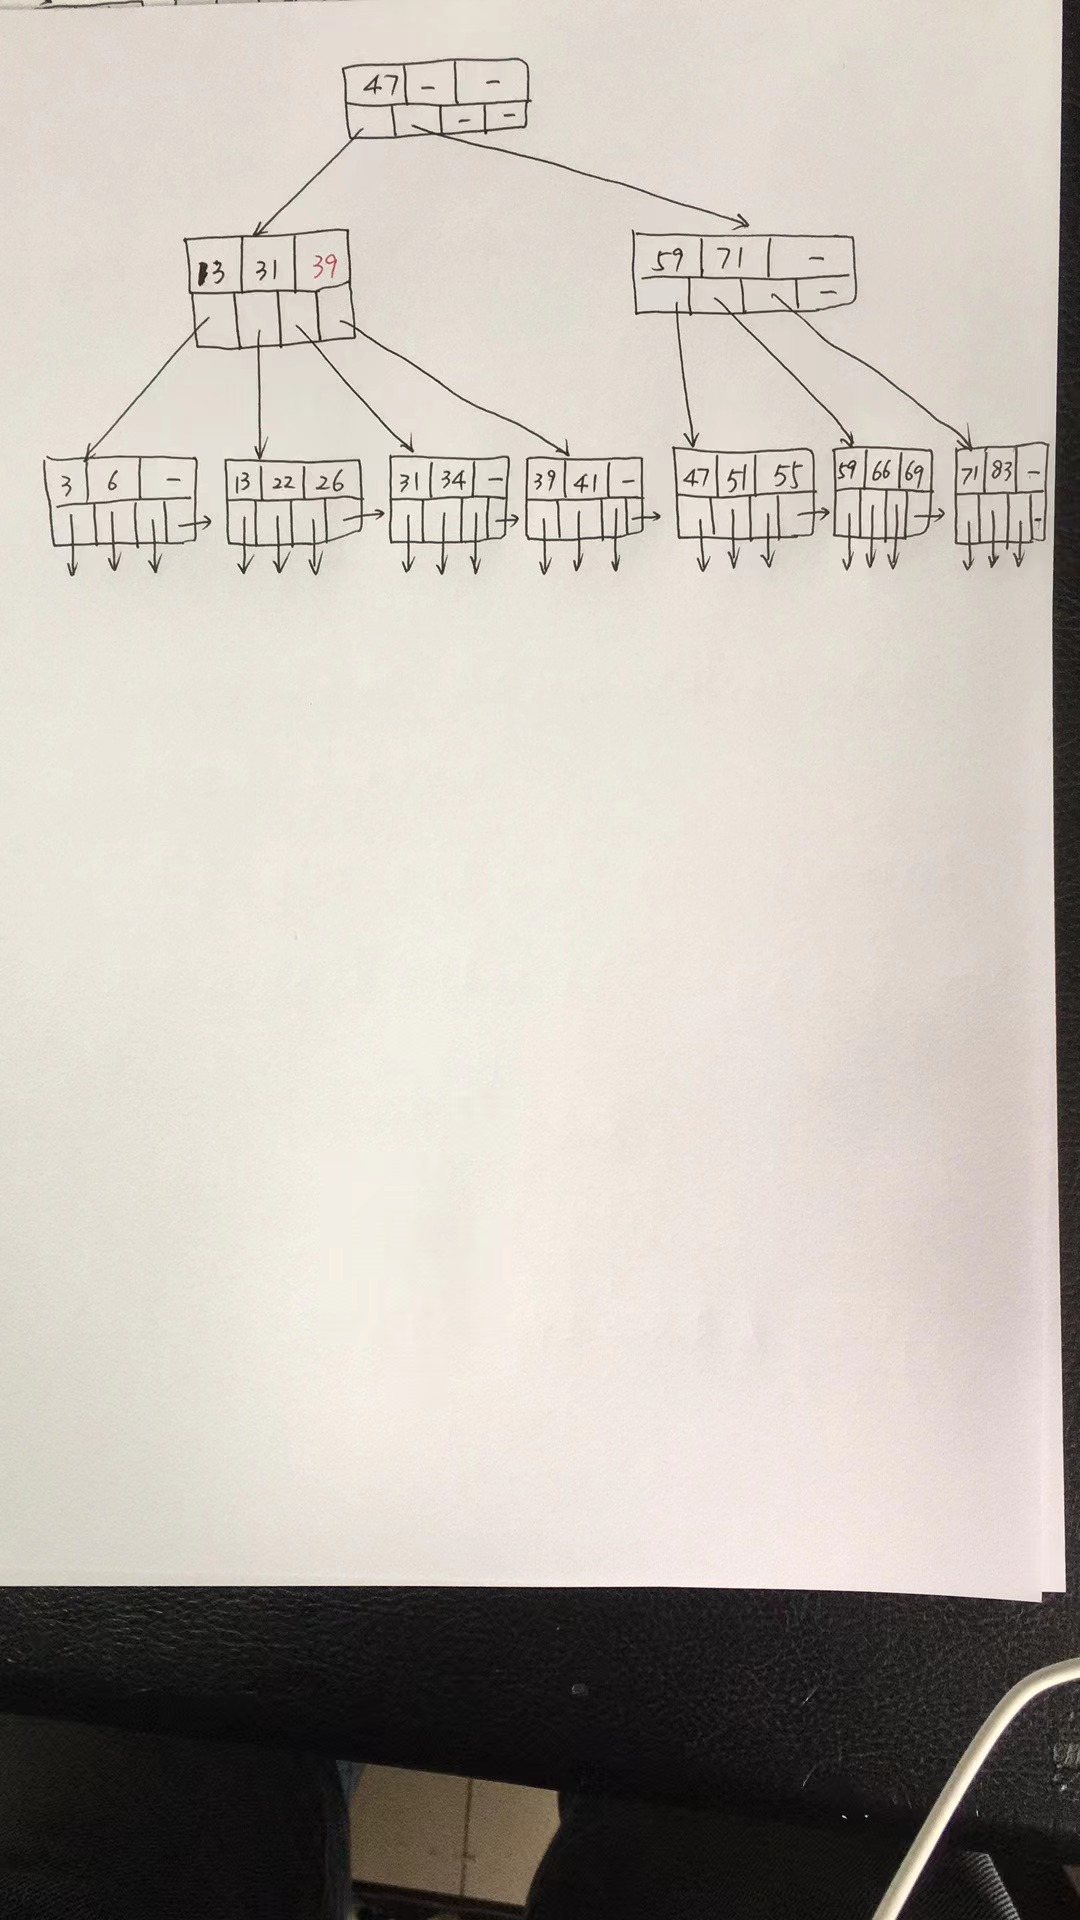 47 - -
- -
13 31 39
59 71 -
-
3 6 - 13 22 26 31 34 - 39 41 - 47 51 55 59 66 69 71 83 -
-